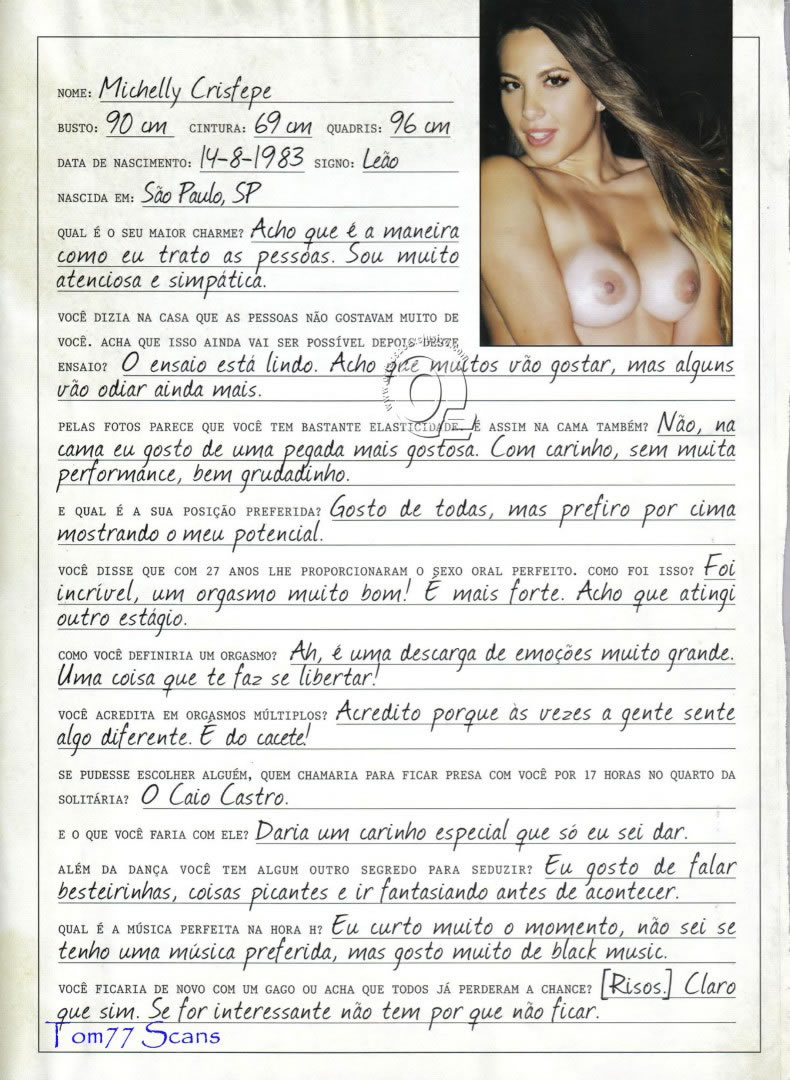 NOME: Michelly Crisfepe
BUSTO: 90 cm CINTURA: 69 cm QUADRIS: 96 cm
DATA DE NASCIMENTO: 14-8-1983 SIGNO: Leão
NASCIDA EM: São Paulo, SP
QUAL É O SEU MAIOR CHARME? Acho que é a maneira
como eu trato as pessoas. Sou muito
atenciosa e simpática.
VOCÊ DIZIA NA CASA QUE AS PESSOAS NÃO GOSTAVAM MUITO DE
VOCÊ. ACHA QUE ISSO AINDA VAI SER POSSÍVEL DEPOIS DESTE
ENSAIO? O ensaio está lindo. Acho que muitos vão gostar, mas alguns
vão odiar ainda mais.
PELAS FOTOS PARECE QUE VOCÊ TEM BASTANTE ELASTICIDADE. É ASSIM NA CAMA TAMBÉM? Não, na
cama eu gosto de uma pegada mais gostosa. Com carinho, sem muita
performance, bem grudadinho.
E QUAL É A SUA POSIÇÃO PREFERIDA? Gosto de todas, mas prefiro por cima
mostrando o meu potencial.
VOCÊ DISSE QUE COM 27 ANOS LHE PROPORCIONARAM O SEXO ORAL PERFEITO. COMO FOI ISSO? Foi
incrível, um orgasmo muito bom! É mais forte. Acho que atingi
outro estágio.
COMO VOCÊ DEFINIRIA UM ORGASMO? Ah, é uma descarga de emoções muito grande.
Uma coisa que te faz se libertar!
VOCÊ ACREDITA EM ORGASMOS MÚLTIPLOS? Acredito porque às vezes a gente sente
algo diferente. É do cacete!
SE PUDESSE ESCOLHER ALGUÉM, QUEM CHAMARIA PARA FICAR PRESA COM VOCÊ POR 17 HORAS NO QUARTO DA
SOLITÁRIA? O Caio Castro.
E O QUE VOCÊ FARIA COM ELE? Daria um carinho especial que só eu sei dar.
ALÉM DA DANÇA VOCÊ TEM ALGUM OUTRO SEGREDO PARA SEDUZIR? Eu gosto de falar
besteirinhas, coisas picantes e ir fantasiando antes de acontecer.
QUAL É A MÚSICA PERFEITA NA HORA H? Eu curto muito o momento, não sei se
tenho uma música preferida, mas gosto muito de black music.
VOCÊ FICARIA DE NOVO COM UM GAGO OU ACHA QUE TODOS JÁ PERDERAM A CHANCE? [Risos.] Claro
que sim. Se for interessante não tem por que não ficar.
Tom77 Scans